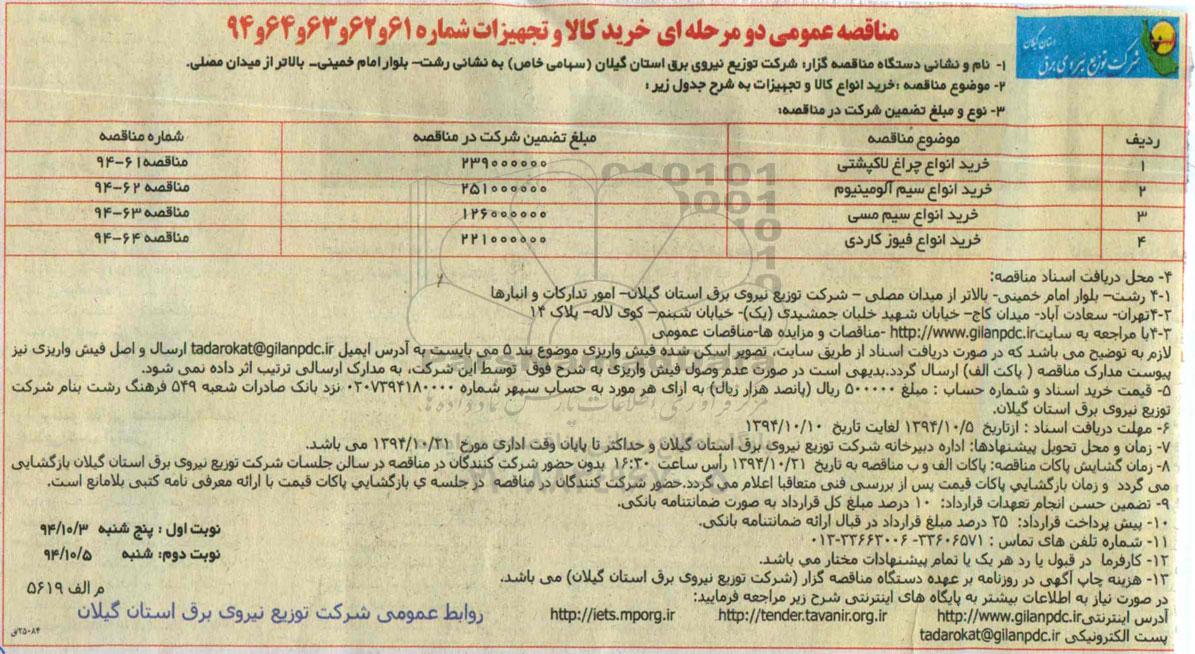 مناقصه عمومی دو مرحله ای خرید کالا و تجهیزات شماره ۶۱و۶۲و۶۳و۶۴و۹۴
استان گیلان
شرکت توزیع نیروی برق
۱- نام و نشانی دستگاه مناقصه گزار: شرکت توزیع نیروی برق استان گیلان (سهامی خاص) به نشانی رشت- بلوار امام خمینی- بالاتر از میدان مصلی.
۲- موضوع مناقصه :خرید انواع کالا و تجهیزات به شرح جدول زیر :
۳- نوع و مبلغ تضمین شرکت در مناقصه:
ردیف موضوع مناقصه مبلغ تضمین شرکت در مناقصه شماره مناقصه
۱ خرید انواع چراغ لاکپشتی ۲۳۹۰۰۰۰۰۰ مناقصه۶۱-۹۴
۲ خرید انواع سیم آلومینیوم ۲۵۱۰۰۰۰۰۰ مناقصه ۶۲-۹۴
۳ خرید انواع سیم مسی ۱۲۶۰۰۰۰۰۰ مناقصه ۶۳-۹۴
۴ خرید انواع فیوز کاردی ۲۲۱۰۰۰۰۰۰ مناقصه ۶۴-۹۴
۴- محل دریافت اسناد مناقصه:
۴-۱ رشت- بلوار امام خمینی- بالاتر از میدان مصلی - شرکت توزیع نیروی برق استان گیلان- امور تدارکات و انبارها
۴-۲تهران- سعادت آباد- میدان کاج- خیابان شهید خلبان جمشیدی (یک)- خیابان شبنم- کوی لاله- پلاک ۱۴
۴-۳با مراجعه به سایتhttp://www.gilanpdc.ir -مناقصات و مزایده ها-مناقصات عمومی
لازم به توضیح می باشد که در صورت دریافت اسناد از طریق سایت، تصویر اسکن شده فیش واریزی موضوع بند ۵ می بایست به آدرس ایمیل tadarokat@gilanpdc.ir ارسال و اصل فیش واریزی نیز
پیوست مدارک مناقصه ( پاکت الف) ارسال گردد.بدیهی است در صورت عدم وصول فیش واریزی به شرح فوق توسط این شرکت، به مدارک ارسالی ترتیب اثر داده نمی شود.
۵- قیمت خرید اسناد و شماره حساب : مبلغ ۵۰۰۰۰۰ ریال (پانصد هزار ریال) به ازای هر مورد به حساب سپهر شماره ۰۲۰۷۳۹۴۱۸۰۰۰۰ نزد بانک صادرات شعبه ۵۴۹ فرهنگ رشت بنام شرکت
توزیع نیروی برق استان گیلان.
۶- مهلت دریافت اسناد : ازتاریخ ۱۳۹۴/۱۰/۵ لغایت تاریخ ۱۳۹۴/۱۰/۱۰
۷- زمان و محل تحویل پیشنهادها: اداره دبیرخانه شرکت توزیع نیروی برق استان گیلان و حداکثر تا پایان وقت اداری مورخ ۱۳۹۴/۱۰/۲۱ می باشد.
۸- زمان گشایش پاکات مناقصه: پاکات الف و ب مناقصه به تاریخ ۱۳۹۴/۱۰/۲۱ رأس ساعت ۱۶:۳۰ بدون حضور شرکت کنندگان در مناقصه در سالن جلسات شرکت توزیع نیروی برق استان گیلان بازگشایی
می گردد و زمان بازگشایی پاکات قیمت پس از بررسی فنی متعاقبا اعلام می گردد.حضور شرکت کنندگان در مناقصه در جلسه ی بازگشایی پاکات قیمت با ارائه معرفی نامه کتبی بلامانع است.
۹- تضمین حسن انجام تعهدات قرارداد: ۱۰ درصد مبلغ کل قرارداد به صورت ضمانتنامه بانکی.
۱۰- پیش پرداخت قرارداد: ۲۵ درصد مبلغ قرارداد در قبال ارائه ضمانتنامه بانکی.
۱۱- شماره تلفن های تماس : ۳۳۶۰۶۵۷۱- ۳۳۶۶۳۰۰۶-۰۱۳
۱۲- کارفرما در قبول یا رد هر یک یا تمام پیشنهادات مختار می باشد.
۱۳- هزینه چاپ آگهی در روزنامه بر عهده دستگاه مناقصه گزار (شرکت توزیع نیروی برق استان گیلان) می باشد.
در صورت نیاز به اطلاعات بیشتر به پایگاه های اینترنتی شرح زیر مراجعه فرمایید:
آدرس اینترنتیhttp://www.gilanpdc.ir http://tender.tavanir.org.ir http://iets.mporg.ir
پست الکترونیکی tadarokat@gilanpdc.ir
نوبت اول : پنج شنبه ۹۴/۱۰/۳
نوبت دوم: شنبه ۹۴/۱۰/۵
م الف ۵۶۱۹
روابط عمومی شرکت توزیع نیروی برق استان گیلان